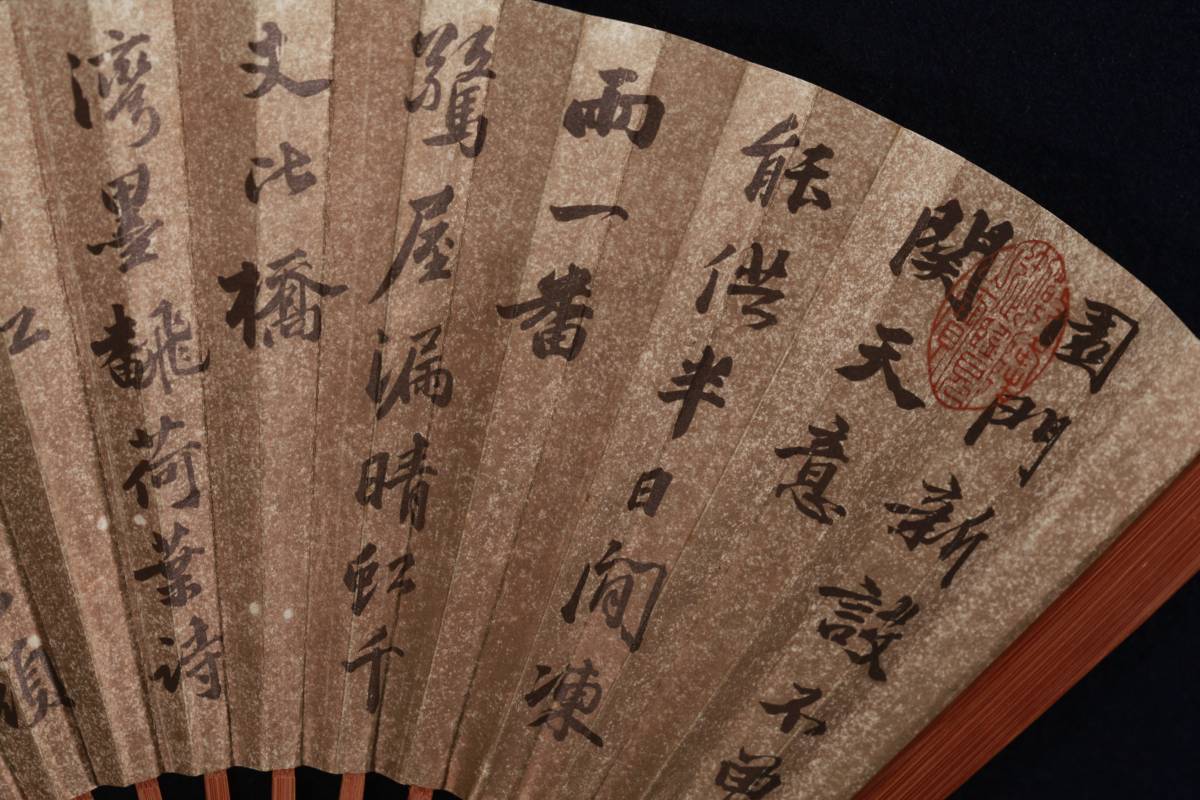 園門新設不曾
關天意
能供半日閒凍
雨一番
驚屋漏晴虹千
丈比橋
灣墨飜荷葉詩